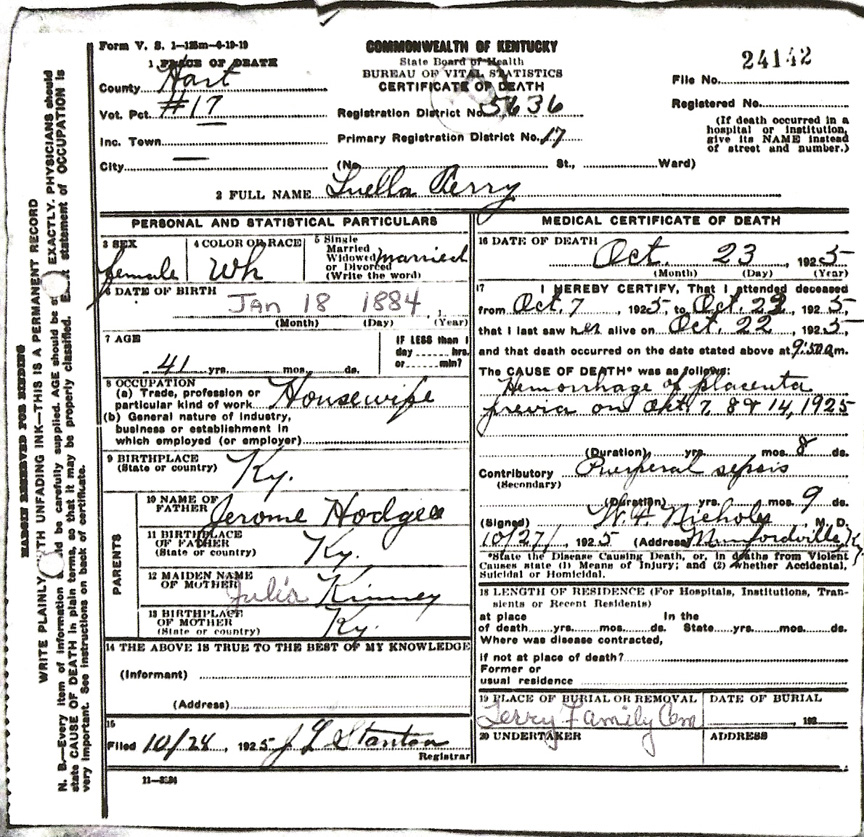 Form V. S. 1—125m—6-19-19
COMMONWEALTH OF KENTUCKY
State Board of Health
BUREAU OF VITAL STATISTICS
CERTIFICATE OF DEATH
24142
File No.
Registered No.
(If death occurred in a hospital or institution, give its NAME instead of street and number.)
1 PLACE OF DEATH
County Hart
Vot. Pct. #17
Inc. Town
City
Registration District No. 5636
Primary Registration District No. 17
(No. St., Ward)
2 FULL NAME Luella
PERSONAL AND STATISTICAL PARTICULARS
3 SEX
female
4 COLOR OR RACE
Wh
5 Single
Married
Widowed married
or Divorced
(Write the word)
6 DATE OF BIRTH
Jan 18 1884
(Month) (Day) (Year)
7 AGE
41 yrs. mos. ds.
IF LESS than 1
day hrs.
or min?
8 OCCUPATION
(a) Trade, profession or
particular kind of work Housewife
(b) General nature of industry,
business or establishment in
which employed (or employer)
9 BIRTHPLACE
(State or country) Ky.
PARENTS
10 NAME OF
FATHER Jerome Hodges
11 BIRTHPLACE
OF FATHER
(State or country) Ky.
12 MAIDEN NAME
OF MOTHER Julia Kinney
13 BIRTHPLACE
OF MOTHER
(State or country) Ky.
14 THE ABOVE IS TRUE TO THE BEST OF MY KNOWLEDGE
(Informant)
(Address)
15
Filed 10/28, 1925 J L Stanton
Registrar
11—3184
MEDICAL CERTIFICATE OF DEATH
16 DATE OF DEATH
Oct. 23, 1925
(Month) (Day) (Year)
17 I HEREBY CERTIFY, That I attended deceased
from Oct. 7, 1925, to Oct. 22, 1925,
that I last saw her alive on Oct. 22, 1925
and that death occurred on the date stated above at 9:50am.
The CAUSE OF DEATH* was as follows:
Hemorrhage of placenta
previa on Oct. 7, 8 & 14, 1925
(Duration) yrs. mos. 8 ds.
Contributory Puerperal sepsis
(Secondary)
(Duration) yrs. mos. 9 ds.
(Signed) Nichols M. D.
10/27/, 1925 (Address) Munfordville, K
*State the Disease Causing Death, or, in deaths from Violent
Causes state (1) Means of Injury; and (2) whether Accidental,
Suicidal or Homicidal.
18 LENGTH OF RESIDENCE (For Hospitals, Institutions, Tran-
sients or Recent Residents)
at place In the
of death yrs. mos. ds. State yrs. mos. ds.
Where was disease contracted,
if not at place of death?
Former or
usual residence
19 PLACE OF BURIAL OR REMOVAL
Family Cem
DATE OF BURIAL
, 192
20 UNDERTAKER
ADDRESS
MARGIN RESERVED FOR BINDING
WRITE PLAINLY WITH UNFADING INK—THIS IS A PERMANENT RECORD
N. B.—Every item of information be carefully supplied. AGE should be EXACTLY. PHYSICIANS should
state CAUSE OF DEATH in plain terms, so that it may be properly classified. statement of OCCUPATION is
very important. See instructions on back of certificate.